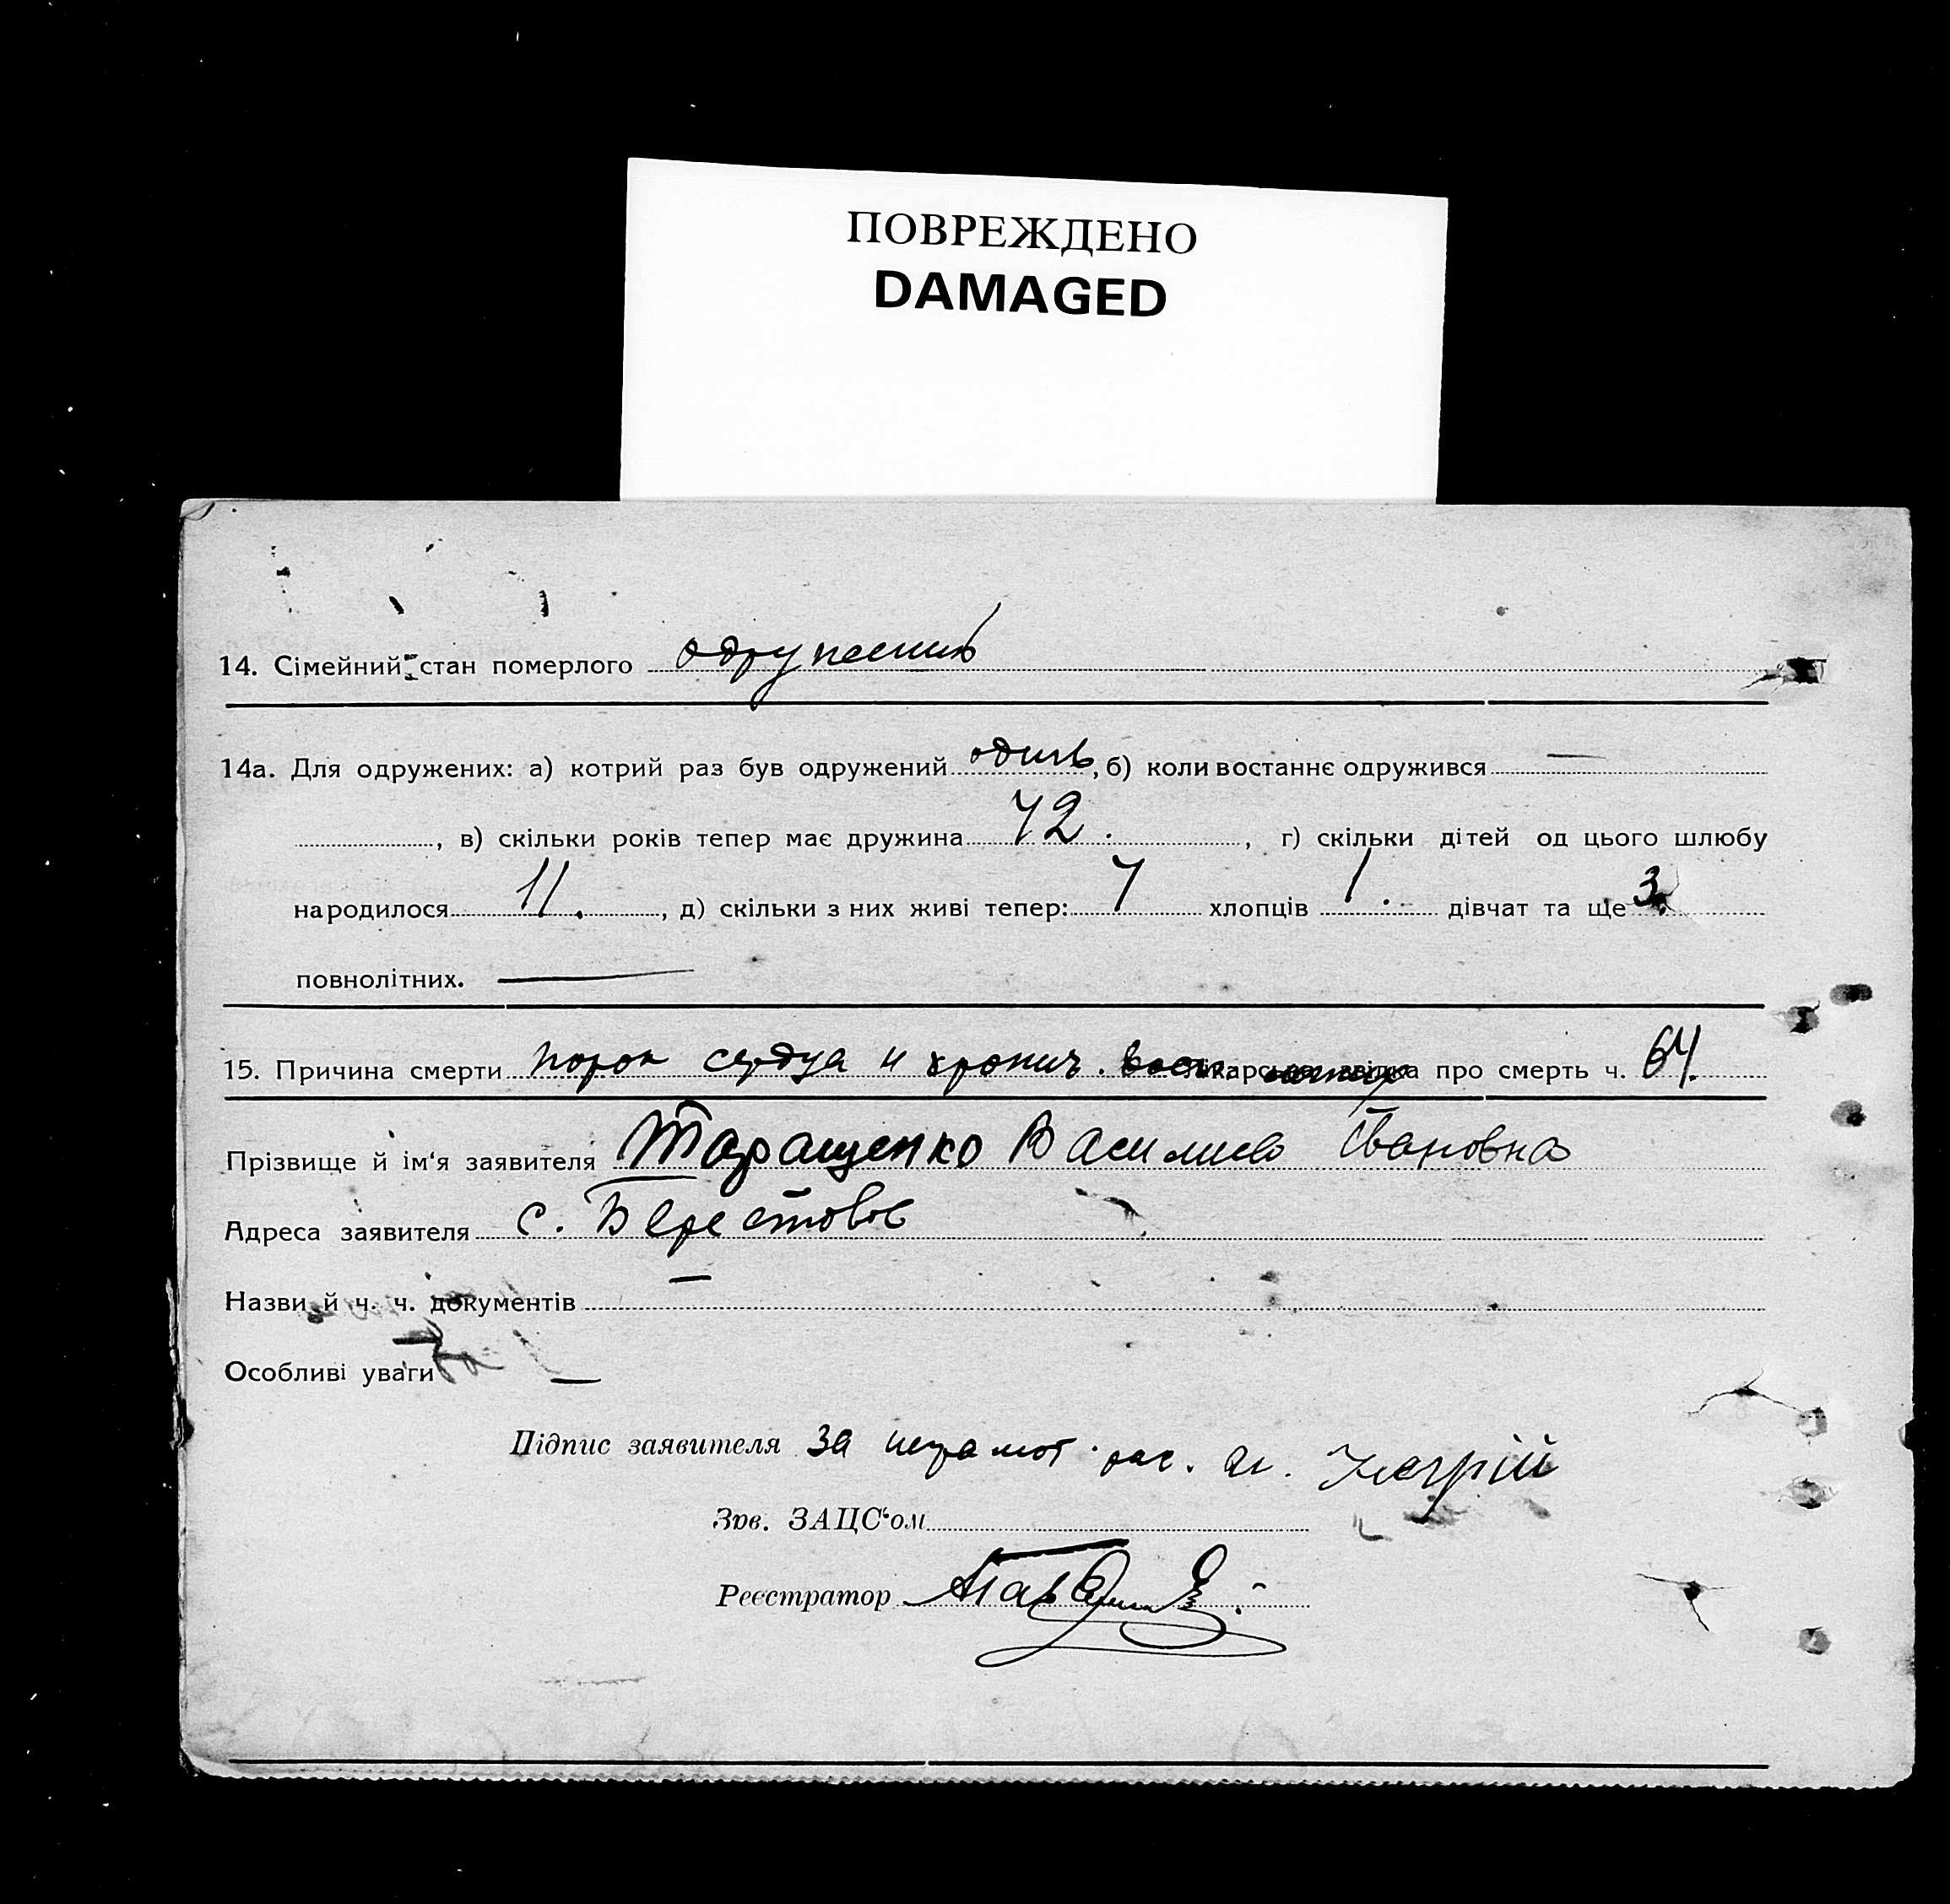 ПОВРЕЖДЕНО
DAMAGED
14. Сімейний стан померлого одружений
14а. Для одружених: а) котрий раз був одружений один, б) коли востаннє одружився —
, в) скільки років тепер має дружина 72. , г) скільки дітей од цього шлюбу
народилося 11. , д) скільки з них живі тепер: 7 хлопців 1. дівчат та ще 3.
повнолітних. —
15. Причина смерти порок сердца и хронич. про смерть ч. 64.
Прізвище й ім'я заявителя Таращенко Василиса Івановна
Адреса заявителя с. Берестове
Назви й ч. ч. документів —
Особливі уваги —
Підпис заявителя за неграмот. рас.
Зав. ЗАЦС'ом
Реєстратор